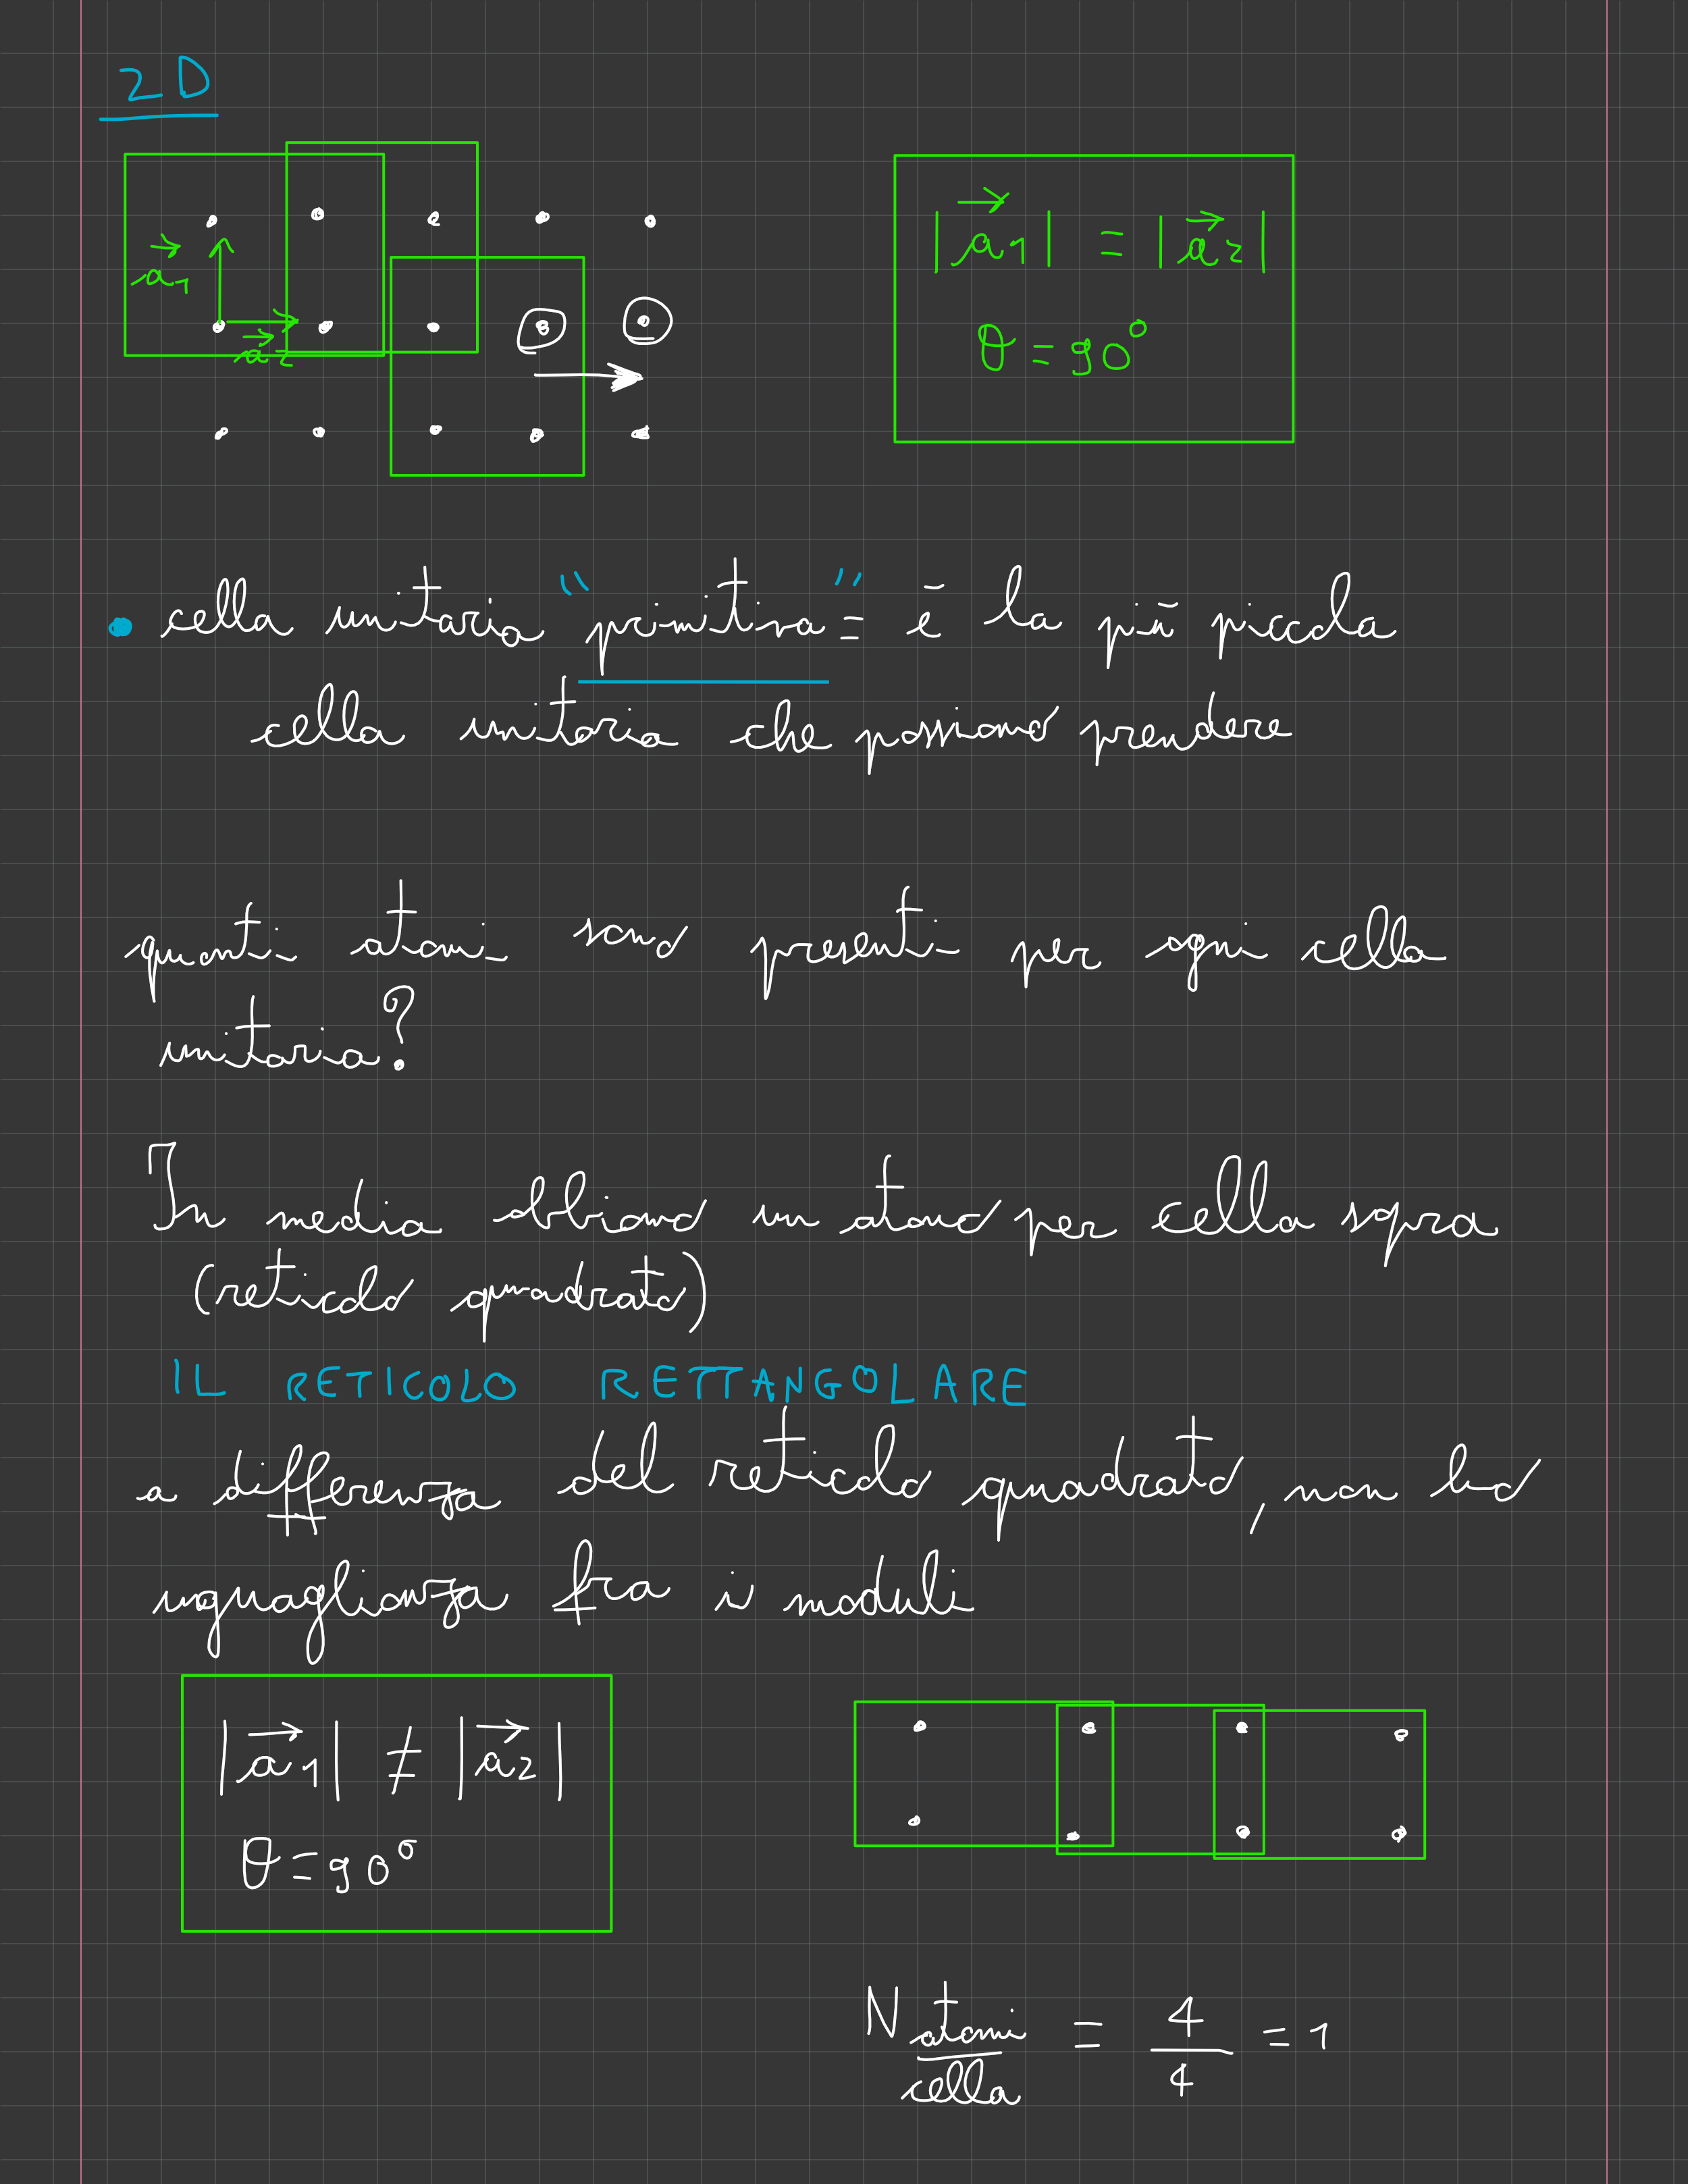 2D
a₁
a₂
|a₁| = |a₂|
θ = 90°
• cella unitaria "primitiva" = è la più piccola
cella unitaria che possiamo prendere
quanti atomi sono presenti per ogni cella
unitaria?
In media abbiamo un atomo per cella sopra
(reticolo quadrato)
IL RETICOLO RETTANGOLARE
a differenza del reticolo quadrato, non ha
uguaglianza fra i moduli
|a₁| ≠ |a₂|
θ = 90°
N atomi/cella = 4/4 = 1